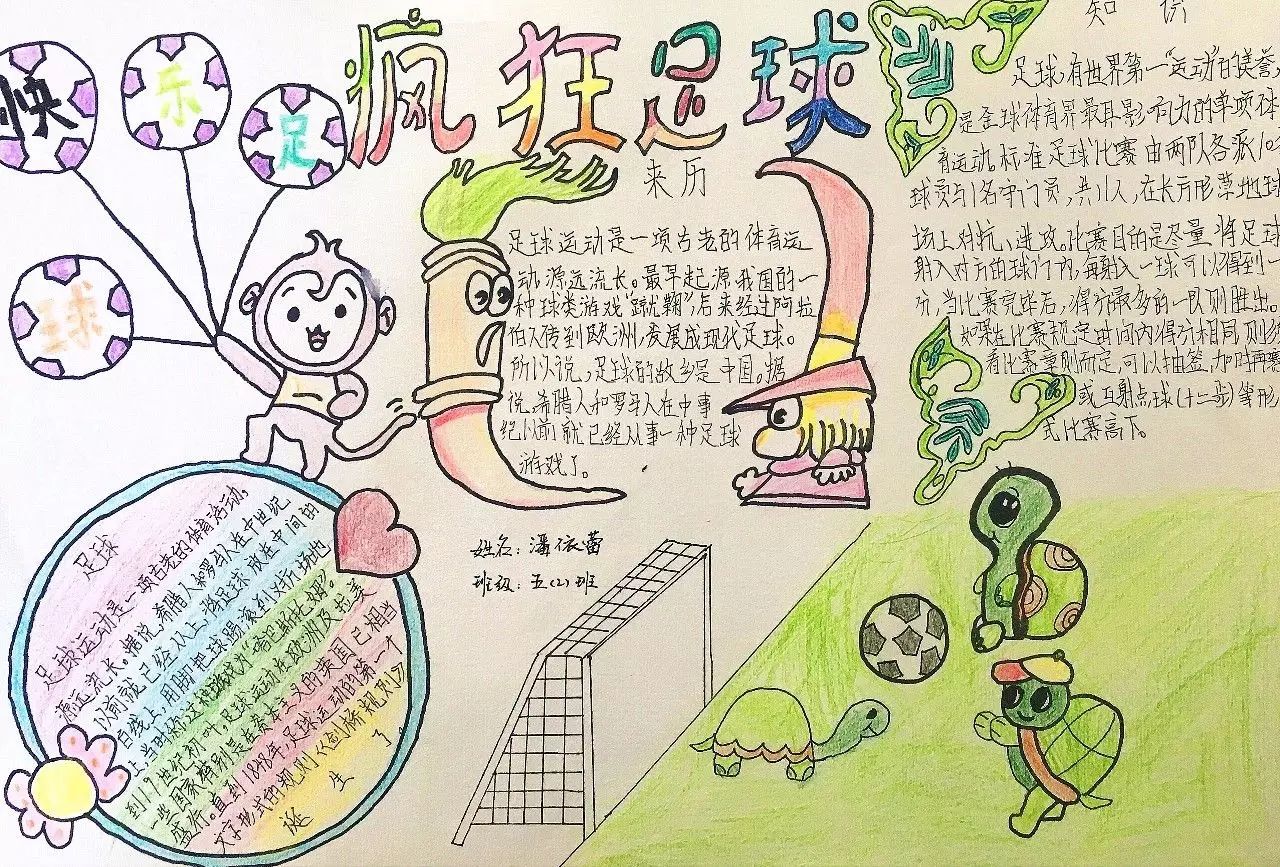 疯狂足球
快
乐
足
球
来历
足球运动是一项古老的体育运
动源远流长。最早起源我国的一
种球类游戏“蹴鞠”,后来经过阿拉
伯人传到欧洲,发展成现代足球。
所以说,足球的故乡是中国。据
说,希腊人和罗马人在中事
纪以前就已经从事一种足球
游戏了。
知识
足球,有世界第一“运动”的美誉,
是全球体育界最具影响力的单项体
育运动.标准足球比赛由两队各派10名
球员与1名守门员,共11人,在长方形草地球
场上对抗、进攻。比赛目的是尽量将足球
射入对方的球门内,每射入一球可以得到一
分,当比赛完毕后,得分最多的一队则胜出。
如果在比赛规定时间内得分相同,则须
看比赛章则而定,可以抽签、加时再赛
或互射点球(十二步)等形
式比赛高下。
姓名:潘依蕾
班级:五(2)班
足球
足球运动是一项古老的体育活动,
源远流长。据说,希腊人和罗马人在中世纪
以前就已经从
人上,将足球放在中间的
白线上,用脚把球踢滚到对方场地
上,当时称这种游戏为“哈巴斯托姆”。
到19世纪初叶,足球运动在欧洲及拉美
一些国家特别是在资本主义的英国已相当
盛行。直到1848年,足球运动的第一个
文字形式的规则《剑桥规则》
诞生了。